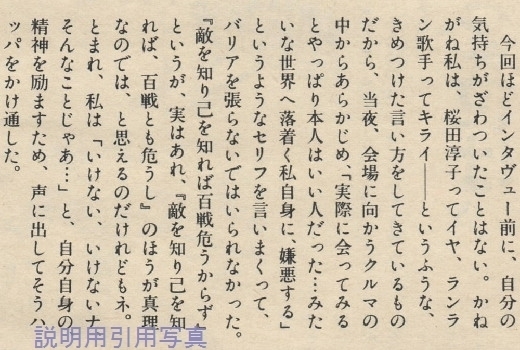 今回ほどインタヴュー前に、自分の
気持ちがざわついたことはない。かね
がね私は、桜田淳子ってイヤ、ランラ
ン歌手ってキライ――というふうな、
きめつけた言い方をしてきているもの
だから、当夜、会場に向かうクルマの
中からあらかじめ、「実際に会ってみる
とやっぱり本人はいい人だった…みた
いな世界へ落着く私自身に、嫌悪する」
というようなセリフを言いまくって、
バリアを張らないではいられなかった。
『敵を知り己を知れば百戦危うからず』
というが、実はあれ、『敵を知り己を知
れば、百戦とも危うし』のほうが真理
なのでは、と思えるのだけれどもネ。
ともあれ、私は「いけない、いけないナ
そんなことじゃあ…」と、自分自身の
精神を励ますため、声に出してそうハ
ッパをかけ通した。
説明用引用写真